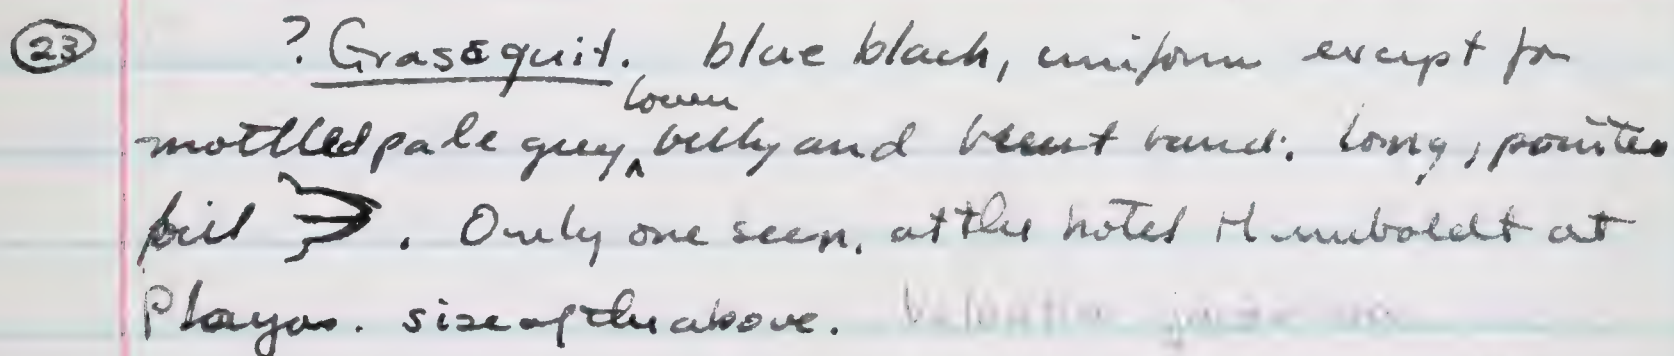 23 ? Grassquit. blue black, uniform except for
mottled pale grey, lower belly and vent. Long, pointed
bill. Only one seen, at the hotel Humboldt at
Playas. size of the above.